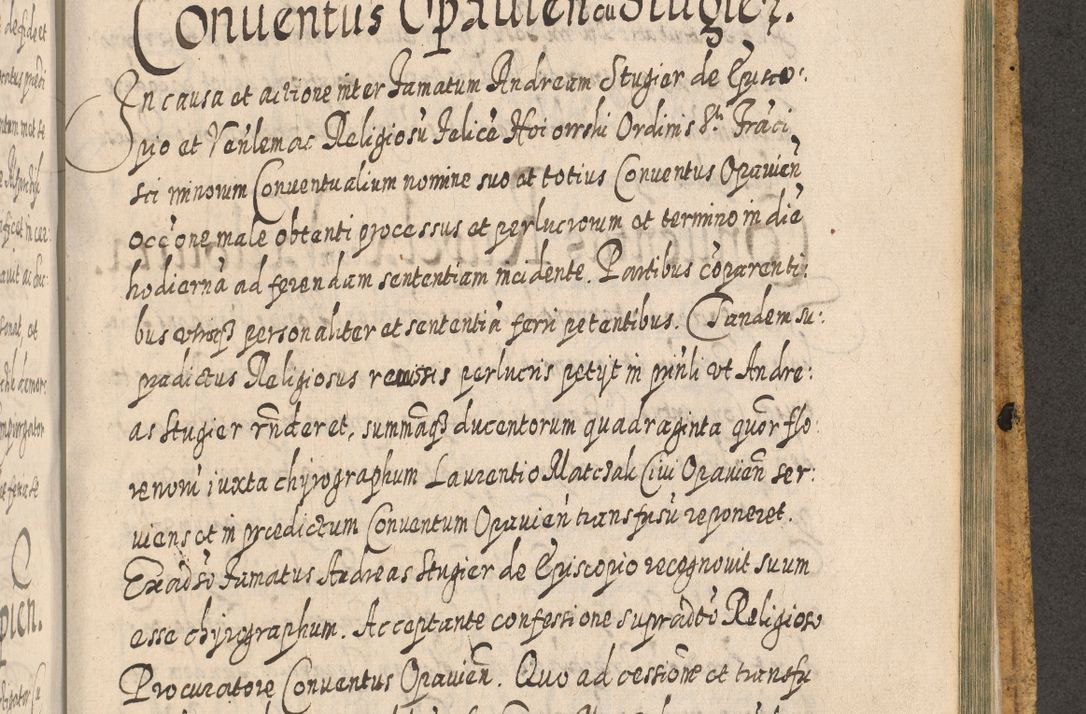 Conuentus Opauien cu Stugier.
In causa et actione inter Famatum Andream Stugier de Episco:
pio et Ven̄lem ac Religiosū Felicē Ordinis S. Frāci
sci minorum Conuentualium nomine suo et totius Conuentus Opauien̄
occ̄one male obtenti processus et perlucrorum et termino in die
hodierna ad ferendam sententiam incidente. Partibus cōparenti:
bus personaliter et sententiā ferri petentibus. Tandem su:
pradictus Religiosus remissis perlucris petijt in prin̄li vt Andre:
as Stugier rn̄deret, summāq3 ducentorum quadraginta quor flo:
renorū iuxta chyrographum Laurentio Matczak Ciui Opauien̄ ser:
uiens et in prædictum Conuentum Opauien̄ transfusū reponeret.
Famatus Andreas Stugier de Episcopio recognouit suum
esse chyrographum. Acceptante confessione supradto Religioso
Procuratore Conuentus Opauien̄. Quo ad cessionē et transfu